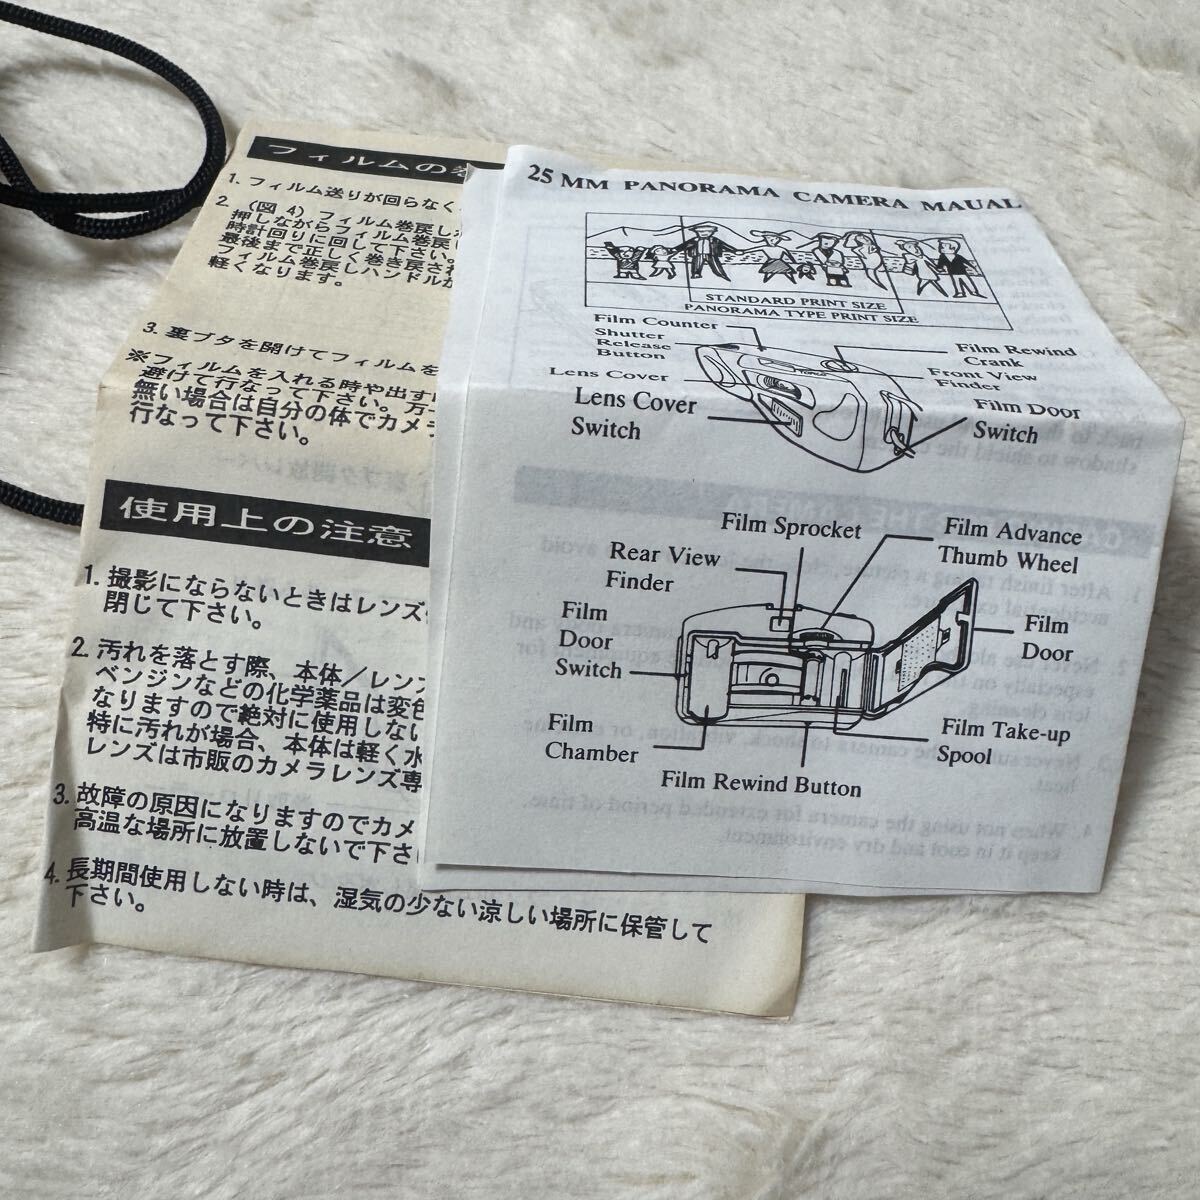 フィルムの巻
1. フィルム送りが回らなく
2. (図 4) フィルム巻戻し
押しながらフィルム巻戻し
時計回りに回して下さい。
最後まで正しく巻き戻され
フィルム巻戻しハンドルが
軽くなります。
3. 裏ブタを開けてフィルムを
※フィルムを入れる時や出す
避けて行なって下さい。万一
無い場合は自分の体でカメラ
行なって下さい。
使用上の注意
1. 撮影にならないときはレンズ
閉じて下さい。
2. 汚れを落とす際、本体/レンズ
ベンジンなどの化学薬品は変色
なりますので絶対に使用しない
特に汚れが場合、本体は軽く水
レンズは市販のカメラレンズ専
3. 故障の原因になりますのでカメ
高温な場所に放置しないで下さい
4. 長期間使用しない時は、湿気の少ない涼しい場所に保管して
下さい。
25 MM PANORAMA CAMERA MAUAL
STANDARD PRINT SIZE
PANORAMA TYPE PRINT SIZE
Film Counter
Shutter
Release
Button
Lens Cover
Lens Cover
Switch
Film Rewind
Crank
Front View
Finder
Film Door
Switch
Film Sprocket
Film Advance
Thumb Wheel
Rear View
Finder
Film
Door
Switch
Film
Door
Film
Chamber
Film Take-up
Spool
Film Rewind Button